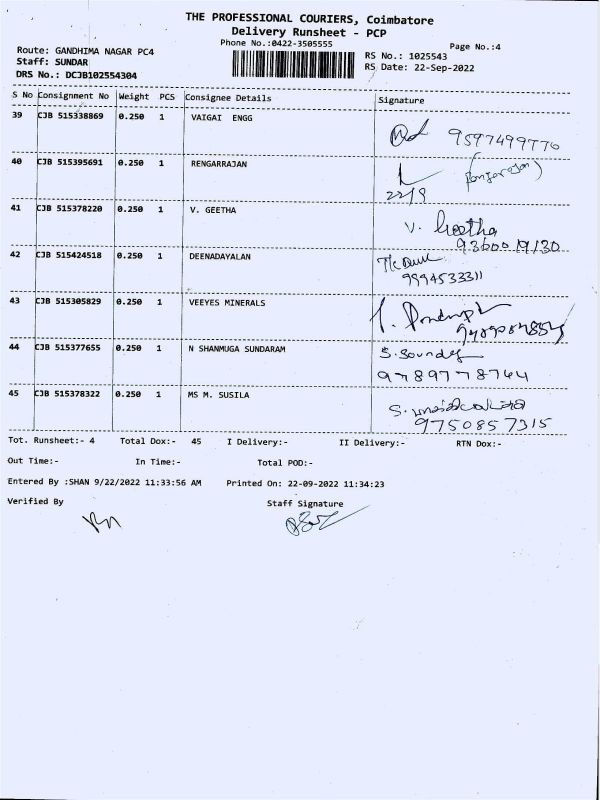 THE PROFESSIONAL COURIERS, Coimbatore
Delivery Runsheet - PCP
Phone No.:0422-3505555
Page No.:4
Route: GANDHIMA NAGAR PC4
Staff: SUNDAR
DRS No.: DCJB102554304
RS No.: 1025543
RS Date: 22-Sep-2022
S No Consignment No Weight PCS Consignee Details Signature
39 CJB 515338869 0.250 1 VAIGAI ENGG 9597499770
40 CJB 515395691 0.250 1 RENGARRAJAN
22/9
41 CJB 515378220 0.250 1 V. GEETHA V. Geetha
9360019130
42 CJB 515424518 0.250 1 DEENADAYALAN
9994533311
43 CJB 515305829 0.250 1 VEEYES MINERALS
44 CJB 515377655 0.250 1 N SHANMUGA SUNDARAM
9789778744
45 CJB 515378322 0.250 1 MS M. SUSILA
9750857315
Tot. Runsheet:- 4 Total Dox:- 45 I Delivery:- II Delivery:- RTN Dox:-
Out Time:- In Time:- Total POD:-
Entered By :SHAN 9/22/2022 11:33:56 AM Printed On: 22-09-2022 11:34:23
Verified By Staff Signature